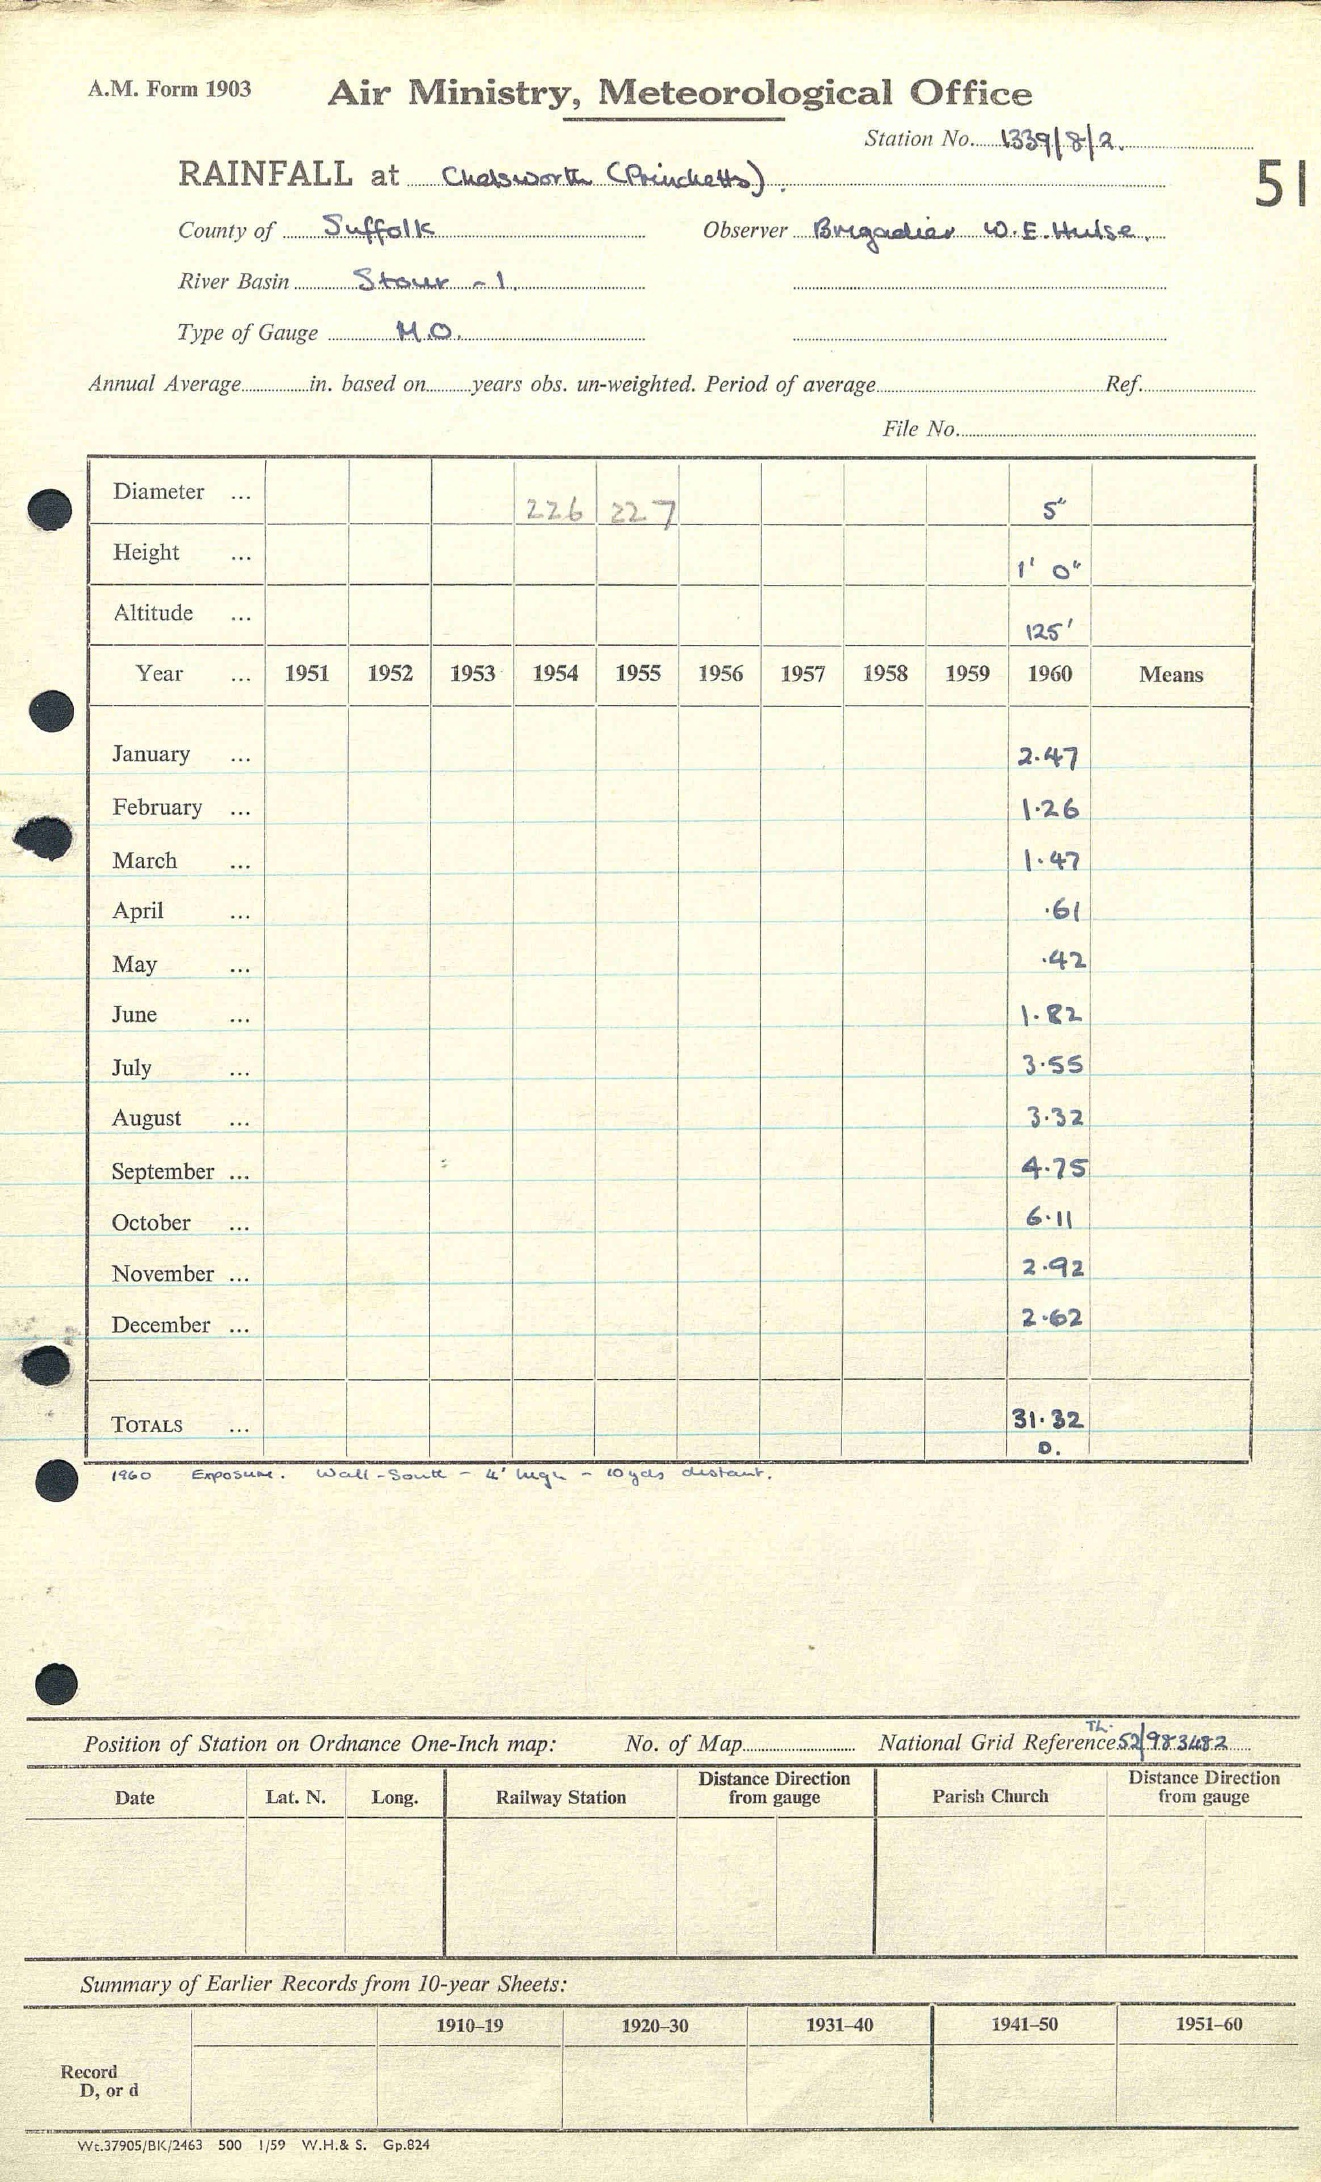 A.M. Form 1903 Air Ministry, Meteorological Office
Station No. 1339/8/2.
RAINFALL at Chelsworth (Princhetts).
51
County of Suffolk Observer Brigadier W.E. Hulse.
River Basin Stour - 1.
Type of Gauge M.O.
Annual Average in. based on years obs. un-weighted. Period of average Ref.
File No.
Diameter ... 226 227 5"
Height ... 1' 0"
Altitude ... 125'
Year ... 1951 1952 1953 1954 1955 1956 1957 1958 1959 1960 Means
January ... 2.47
February ... 1.26
March ... 1.47
April ... .61
May ... .42
June ... 1.82
July ... 3.55
August ... 3.32
September ... 4.75
October ... 6.11
November ... 2.92
December ... 2.62
TOTALS ... 31.32
D.
1960 Exposure. Wall - South - 4' high - 10yds distant.
Position of Station on Ordnance One-Inch map: No. of Map National Grid Reference TL. 52/983482
Date Lat. N. Long. Railway Station Distance Direction from gauge Parish Church Distance Direction from gauge
Summary of Earlier Records from 10-year Sheets:
1910–19 1920–30 1931–40 1941–50 1951–60
Record
D, or d
Wt.37905/BK/2463 500 1/59 W.H.& S. Gp.824